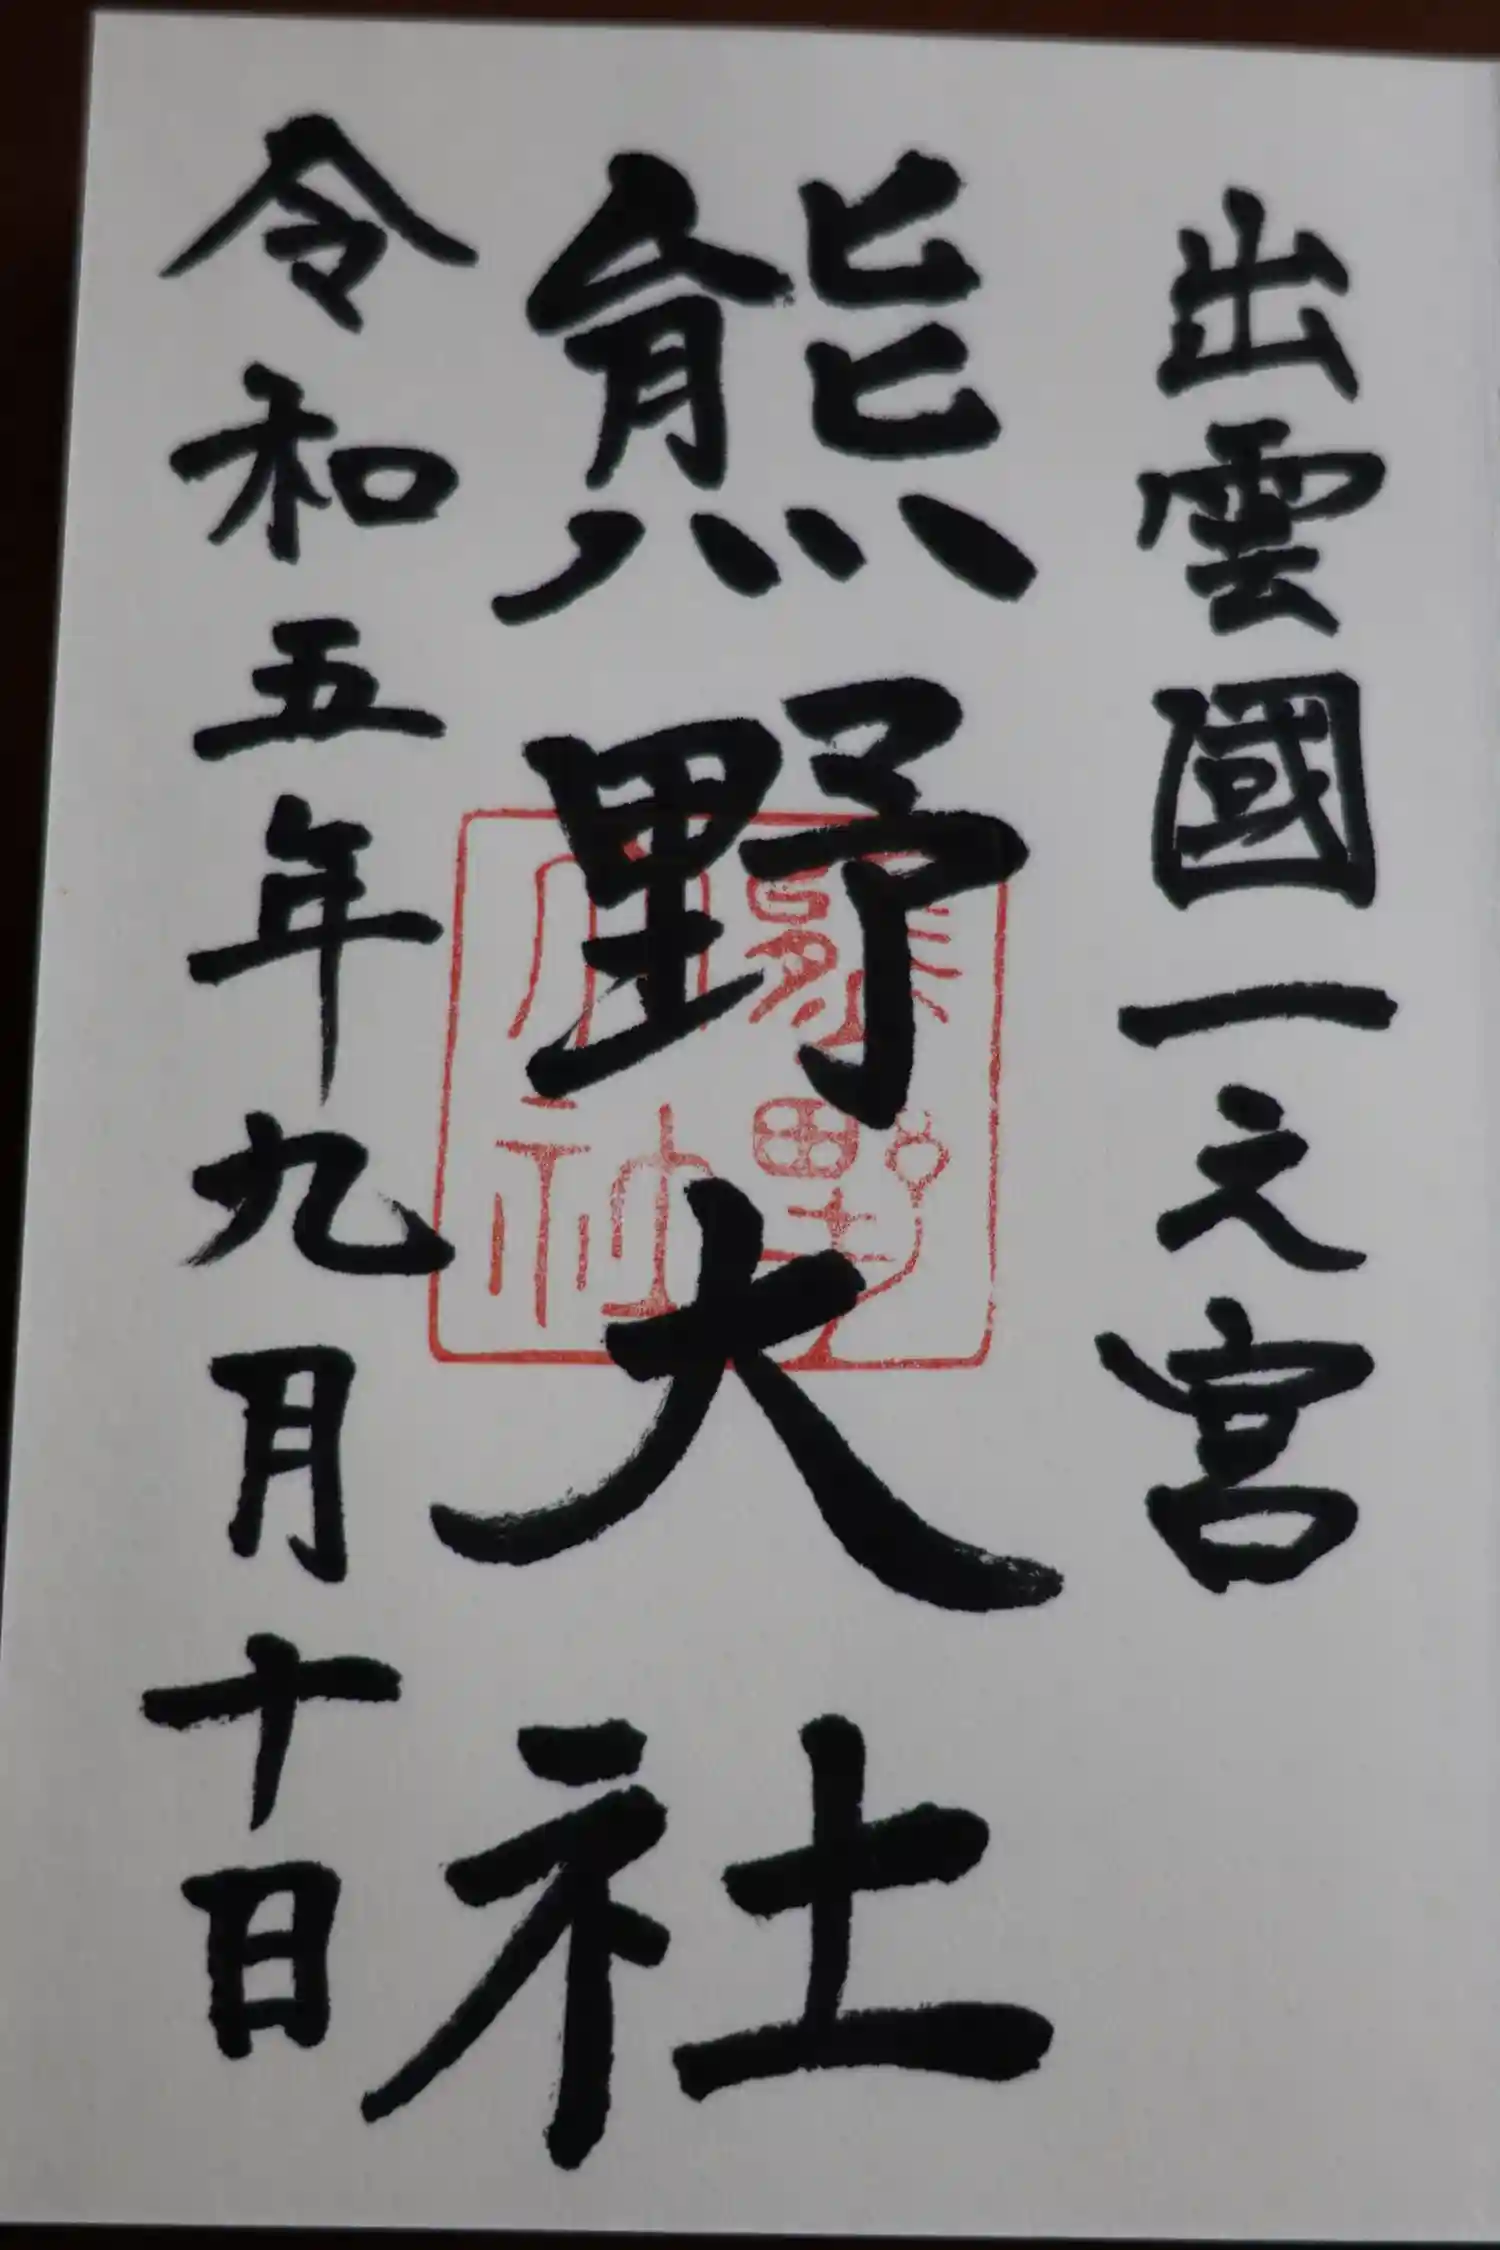 出雲國一之宮
熊野大社
令和五年九月十日
熊野大社